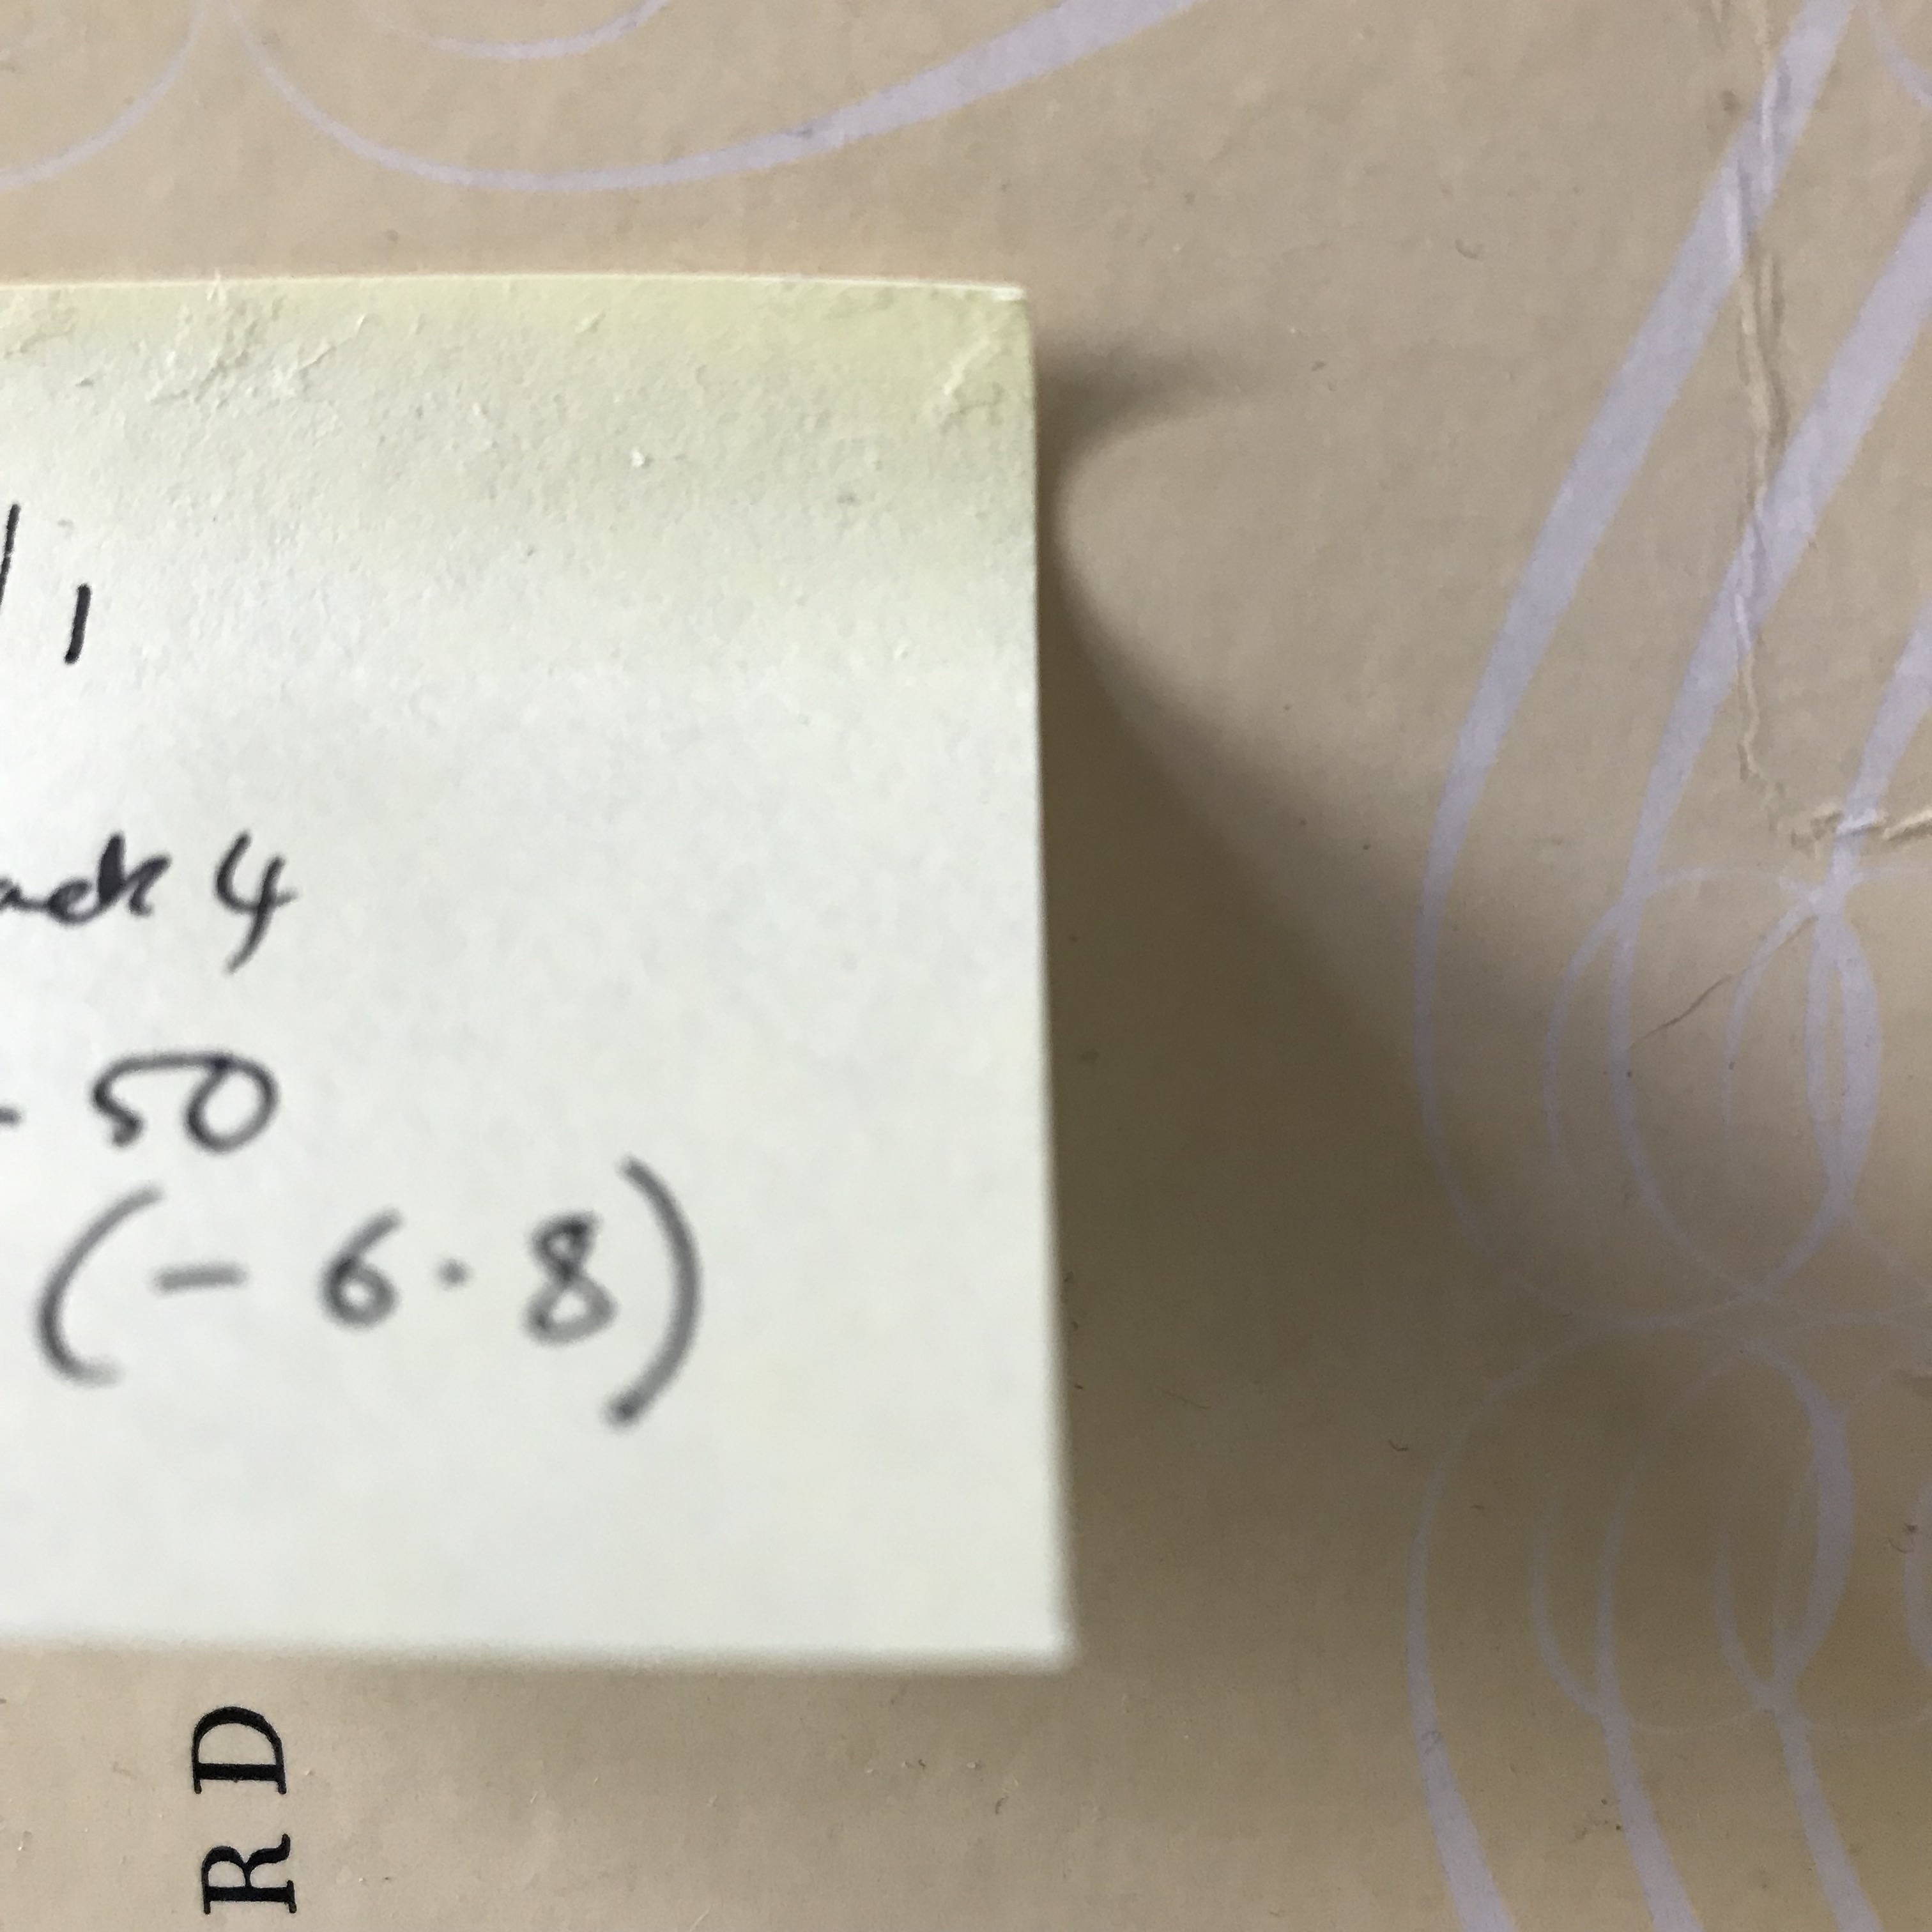 /1
ack 4
- 50
(- 6.8)
RD